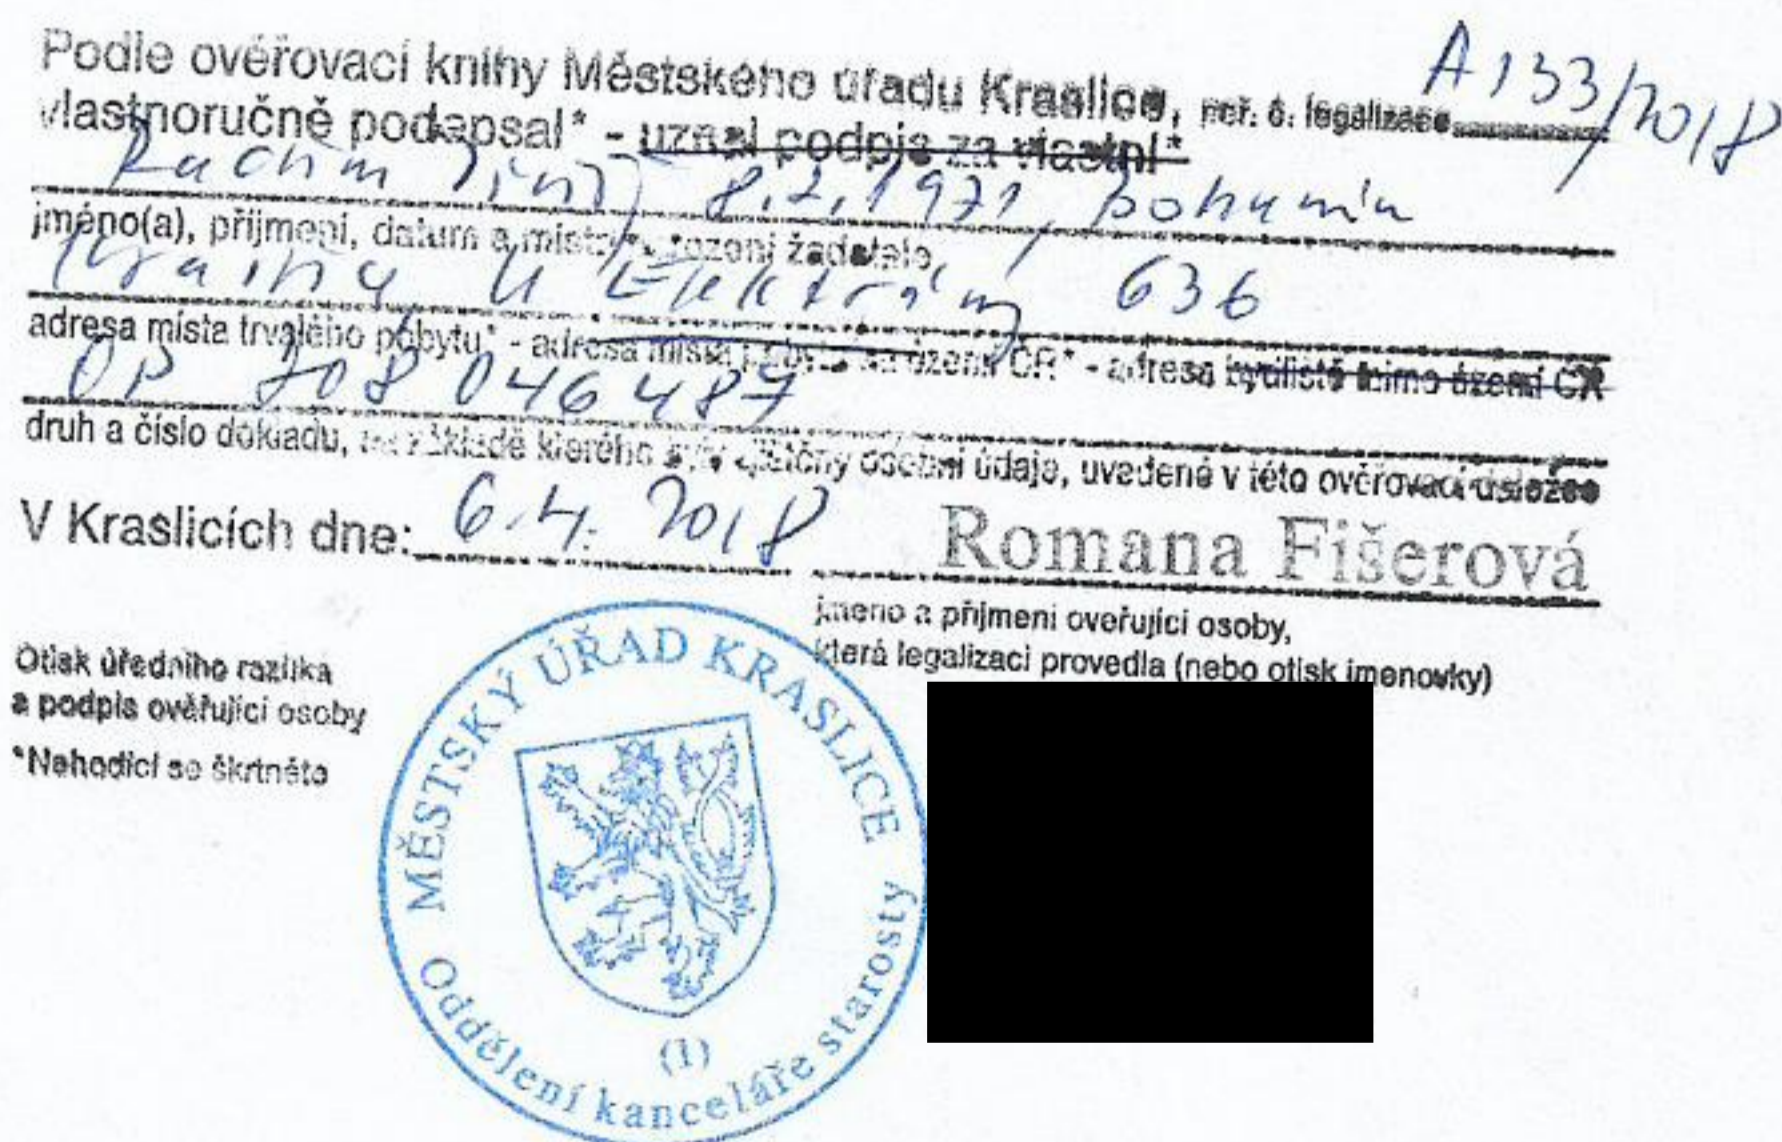 Podle ověřovací knihy Městského úřadu Kraslice, poř. č. legalizace A133/2018
vlastnoručně podepsal* - uznal podpis za vlastní*
8.2.1971, Bohumín
jméno(a), příjmení, datum a místo narození žadatele,
U Elektrárny 636
adresa místa trvalého pobytu* - adresa místa pobytu na území ČR* - adresa bydliště mimo území ČR
OP 208046487
druh a číslo dokladu, na základě kterého byly zjištěny osobní údaje, uvedené v této ověřovací doložce
V Kraslicích dne: 6.4. 2018 Romana Fišerová
jméno a příjmení ověřující osoby,
která legalizaci provedla (nebo otisk jmenovky)
Otisk úředního razítka
a podpis ověřující osoby
*Nehodící se škrtněte
MĚSTSKÝ ÚŘAD KRASLICE
(1)
Oddělení kanceláře starosty